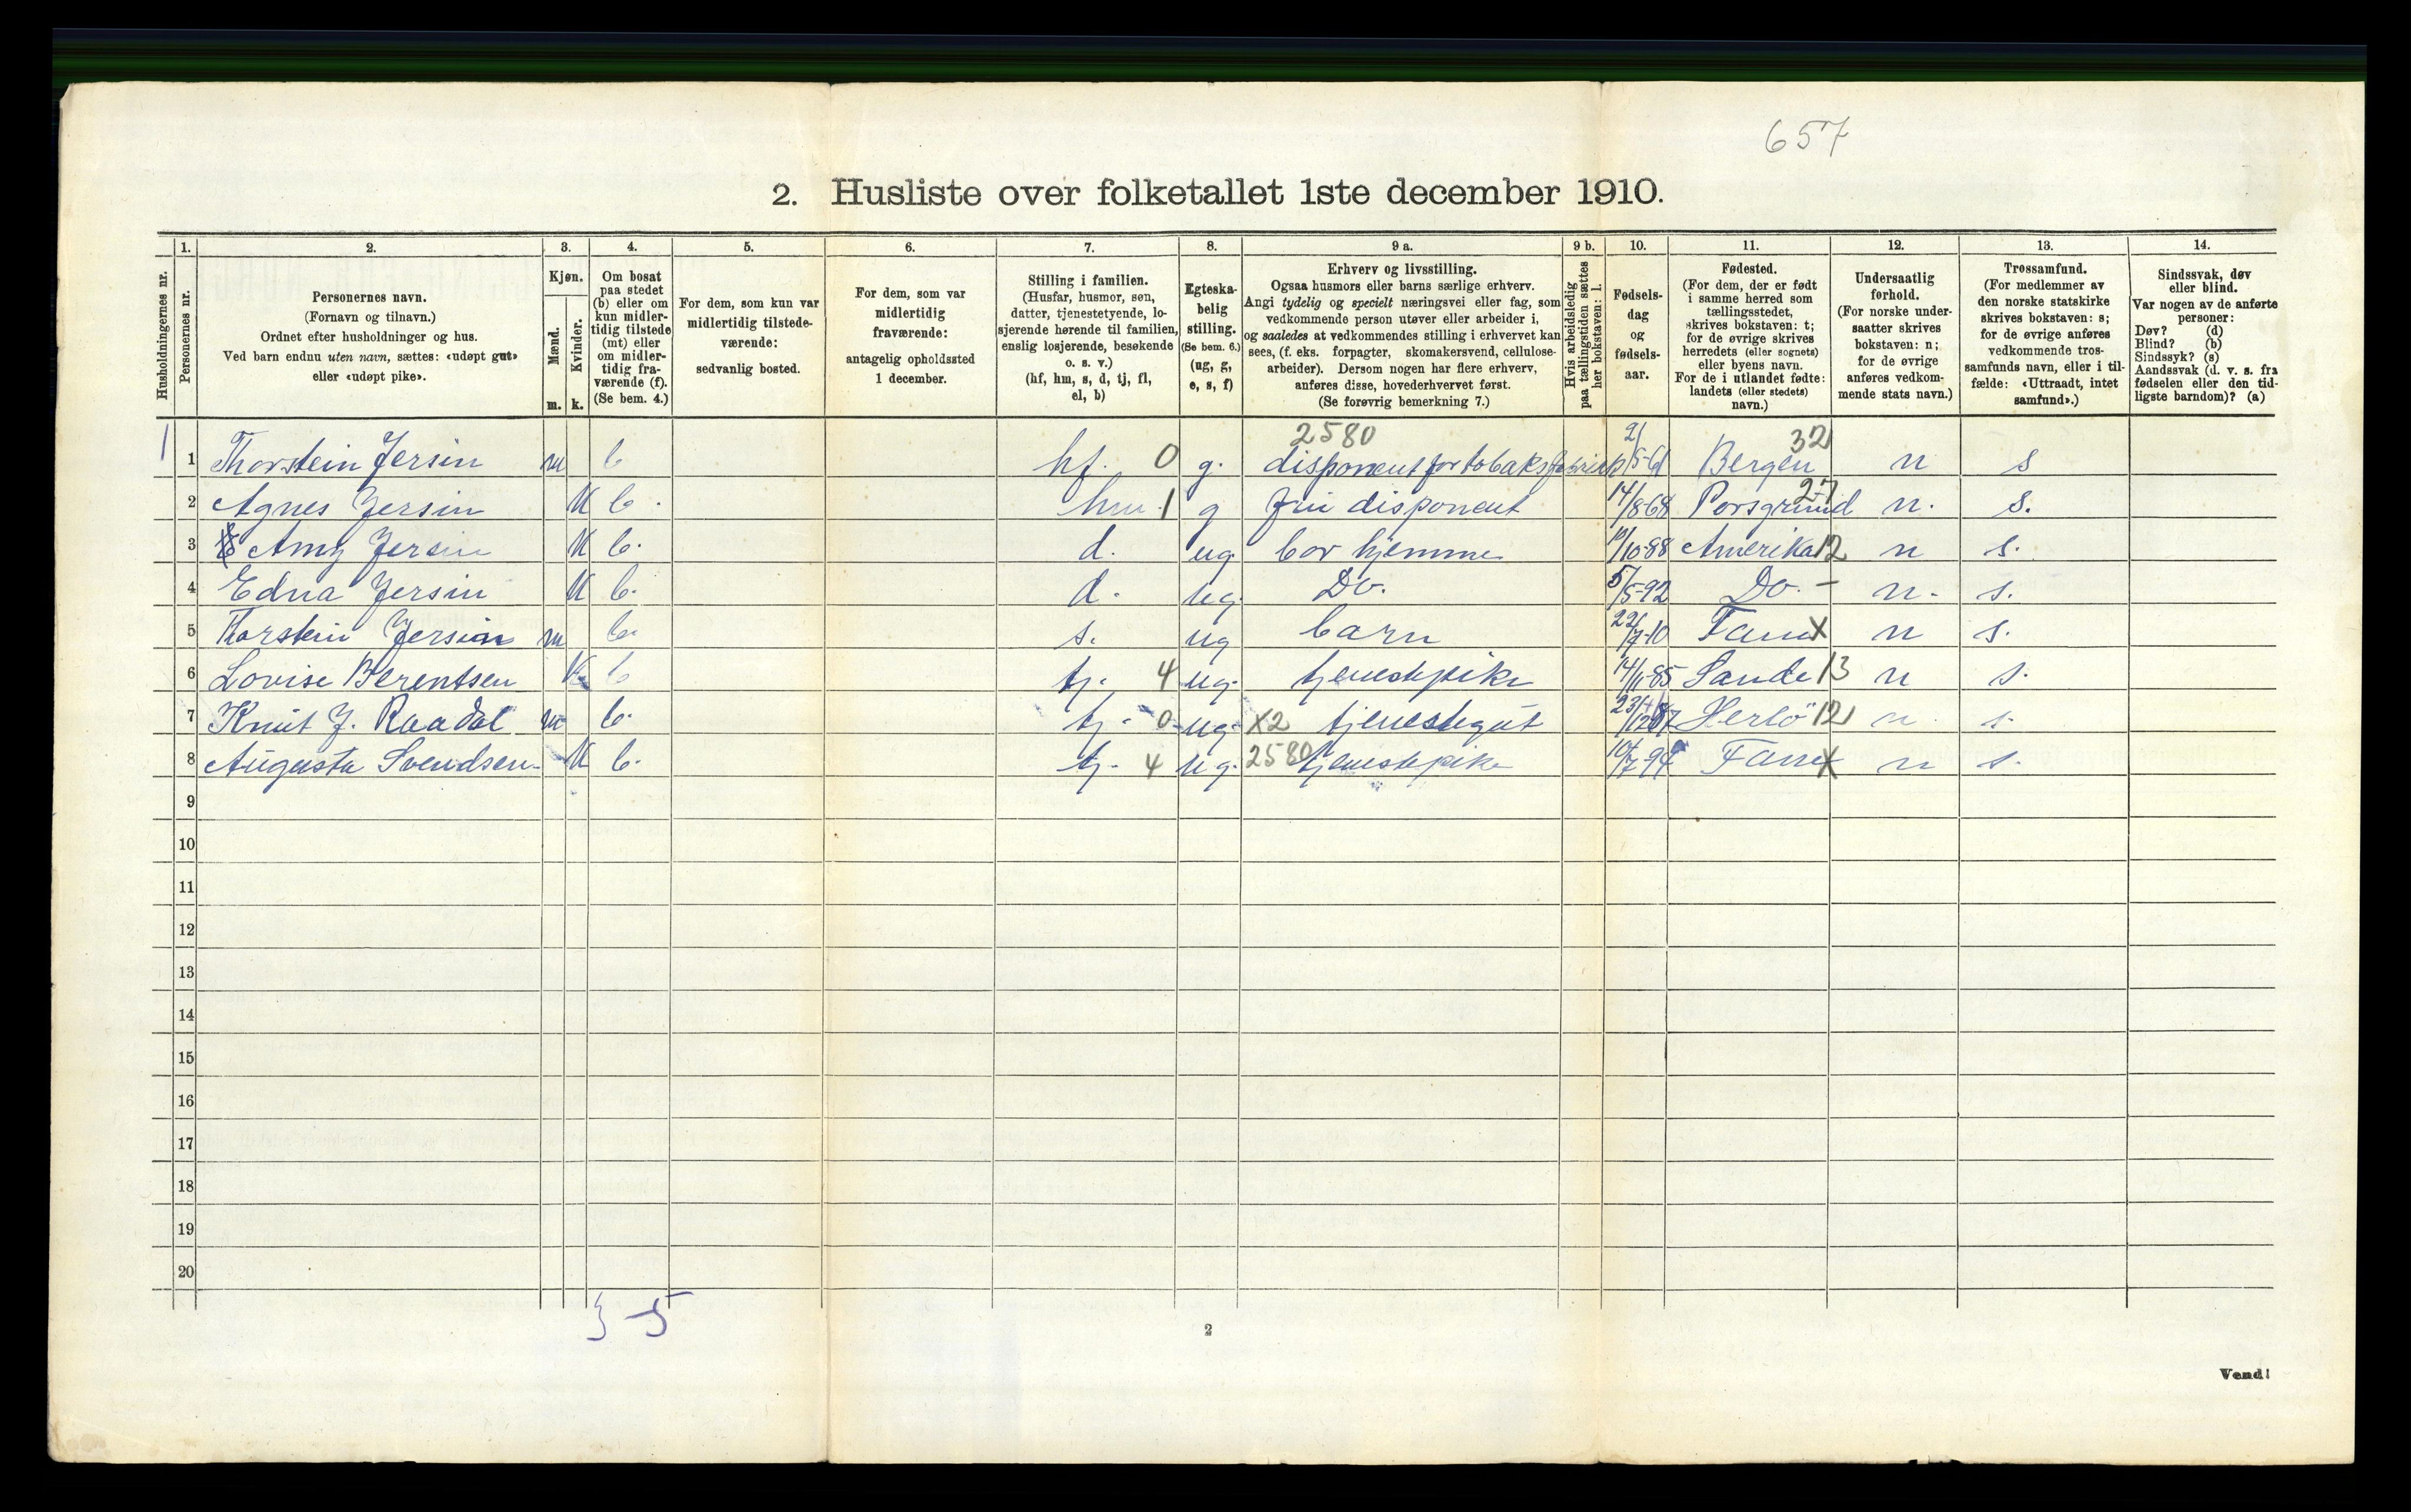 657
2. Husliste over folketallet 1ste december 1910.
1. 2. 3. 4. 5. 6. 7. 8. 9 a. 9 b. 10. 11. 12. 13. 14.
Husholdningernes nr.
Personernes nr.
Personernes navn.
(Fornavn og tilnavn.)
Ordnet efter husholdninger og hus.
Ved barn endnu uten navn, sættes: «udøpt gut»
eller «udøpt pike».
Kjøn.
Mænd.
Kvinder.
m. k.
Om bosat
paa stedet
(b) eller om
kun midler-
tidig tilstede
(mt) eller
om midler-
tidig fra-
værende (f).
(Se bem. 4.)
For dem, som kun var
midlertidig tilstede-
værende:
sedvanlig bosted.
For dem, som var
midlertidig
fraværende:
antagelig opholdssted
1 december.
Stilling i familien.
(Husfar, husmor, søn,
datter, tjenestetyende, lo-
sjerende hørende til familien,
enslig losjerende, besøkende
o. s. v.)
(hf, hm, s, d, tj, fl,
el, b)
Egteska-
belig
stilling.
(Se bem. 6.)
(ug, g,
e, s, f)
Erhverv og livsstilling.
Ogsaa husmors eller barns særlige erhverv.
Angi tydelig og specielt næringsvei eller fag, som
vedkommende person utøver eller arbeider i,
og saaledes at vedkommendes stilling i erhvervet kan
sees, (f. eks. forpagter, skomakersvend, cellulose-
arbeider). Dersom nogen har flere erhverv,
anføres disse, hovederhvervet først.
(Se forøvrig bemerkning 7.)
Hvis arbeidsledig
paa tællingstiden sættes
her bokstaven: l.
Fødsels-
dag
og
fødsels-
aar.
Fødested.
(For dem, der er født
i samme herred som
tællingsstedet,
skrives bokstaven: t;
for de øvrige skrives
herredets (eller sognets)
eller byens navn.
For de i utlandet fødte:
landets (eller stedets)
navn.)
Undersaatlig
forhold.
(For norske under-
saatter skrives
bokstaven: n;
for de øvrige
anføres vedkom-
mende stats navn.)
Trossamfund.
(For medlemmer av
den norske statskirke
skrives bokstaven: s;
for de øvrige anføres
vedkommende tros-
samfunds navn, eller i til-
fælde: «Uttraadt, intet
samfund».)
Sindssvak, døv
eller blind.
Var nogen av de anførte
personer:
Døv? (d)
Blind? (b)
Sindssyk? (s)
Aandssvak (d. v. s. fra
fødselen eller den tid-
ligste barndom)? (a)
2580 32
1 1 Thorstein Jersin m b hf. 0 g. disponent for tobaksfabrik Bergen n s
27
2 Agnes Jersin K b. hm. 1 g Fru disponent 14/8-68 Porsgrund n. s.
3 Amy Jersin K b. d. ug. bor hjemme 19/10-88 Amerika 12 n s.
4 Edna Jersin K b. d. ug. Do. 5/5-92 Do. - n. s.
5 Thorstein Jersin m b. s. ug barn 22/7-10 Fane X n s.
6 Lovise Berentsen K b tj. 4 ug. tjenestepike 14/11-85 Sande 13 n s.
7 Knut J. Raadal m b. tj. 0 ug. X2 tjenestegut Herlö 12 n. s.
8 Augusta Svendsen K b. tj. 4 ug. 2580 tjenestepike 10/7-94 Fane X n s.
9
10
11
12
13
14
15
16
17
18
19
20
3 - 5
2
Vend!